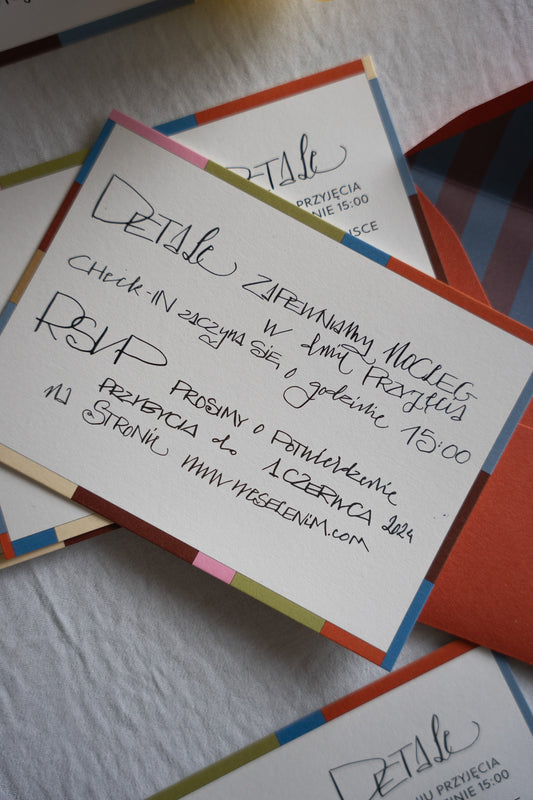 DETALE
PRZYJĘCIA
15:00
DETALE ZAPEWNIAMY NOCLEG
w dniu PRZYJĘCIA
CHECK-IN zaczyna SIĘ o godzinie 15:00
RSVP PROSIMY o potwierdzenie
PRZYBYCIA do 1 CZERWCA 2024
NA STRONIE www.weselenim.com
DETALE
PRZYJĘCIA
15:00